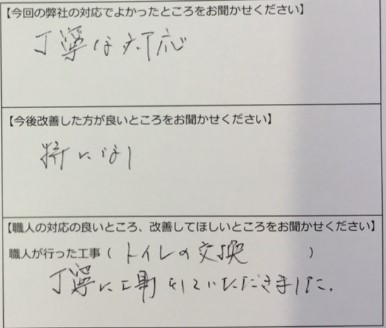 【今回の弊社の対応でよかったところをお聞かせください】
丁寧な対応
【今後改善した方が良いところをお聞かせください】
特になし
【職人の対応の良いところ、改善してほしいところをお聞かせください】
職人が行った工事（トイレの交換）
丁寧に工事をしていただきました。